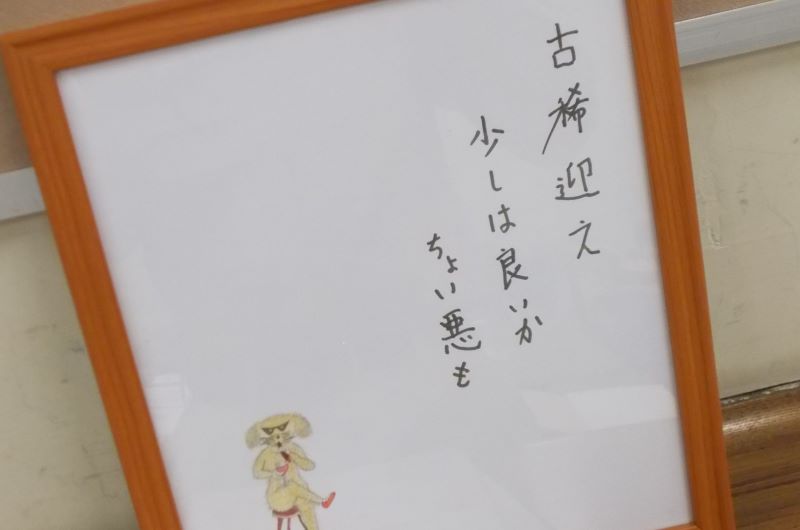 古稀迎え
少しは良いか
ちょい悪も